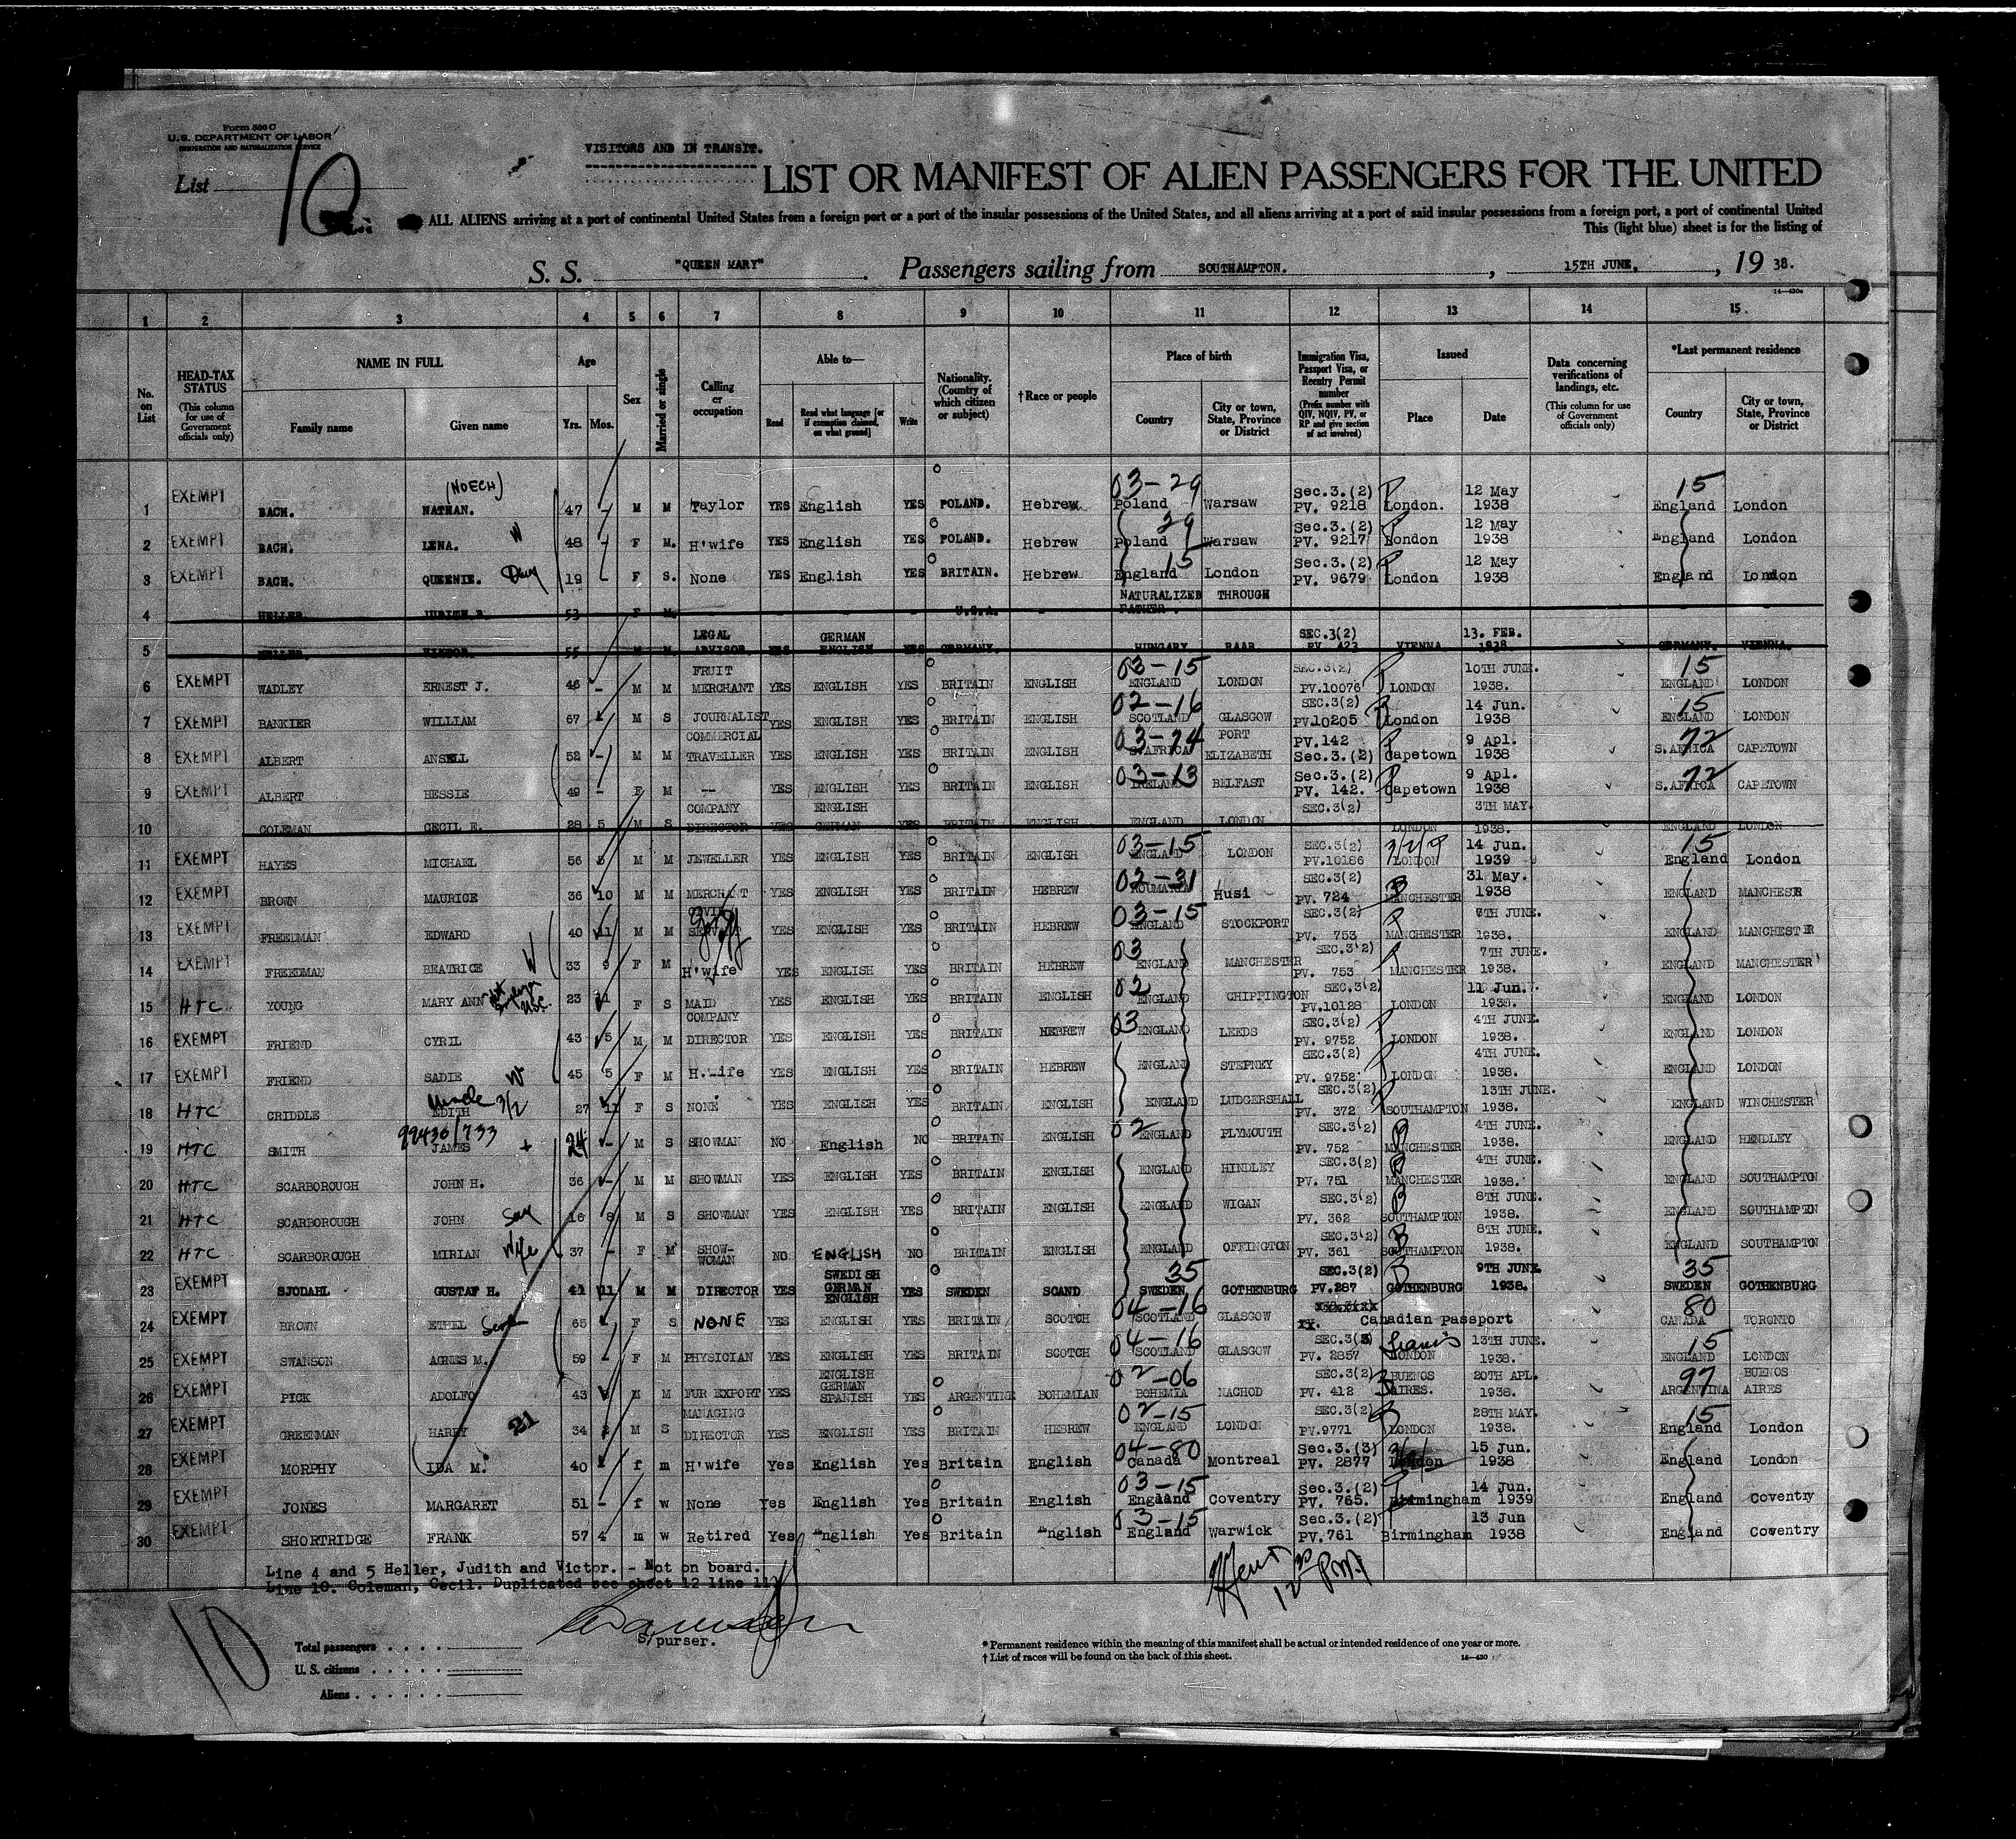 Form 500 C
U.S. DEPARTMENT OF LABOR
IMMIGRATION AND NATURALIZATION SERVICE
VISITORS AND IN TRANSIT.
List 10
LIST OR MANIFEST OF ALIEN PASSENGERS FOR THE UNITED
ALL ALIENS arriving at a port of continental United States from a foreign port or a port of the insular possessions of the United States, and all aliens arriving at a port of said insular possessions from a foreign port, a port of continental United
This (light blue) sheet is for the listing of
S. S. "QUEEN MARY" Passengers sailing from SOUTHAMPTON. , 15TH JUNE. , 19 38.
14—430a
1 2 3 4 5 6 7 8 9 10 11 12 13 14 15
No. on List
HEAD-TAX STATUS (This column for use of Government officials only)
NAME IN FULL Family name Given name
Age Yrs. Mos.
Sex
Married or single
Calling or occupation
Able to— Read Read what language [or if exemption claimed, on what ground] Write
Nationality. (Country of which citizen or subject)
† Race or people
Place of birth Country City or town, State, Province or District
Immigration Visa, Passport Visa, or Reentry Permit number (Prefix number with QIV, NQIV, PV, or RP and give section of act involved)
Issued Place Date
Data concerning verifications of landings, etc. (This column for use of Government officials only)
*Last permanent residence Country City or town, State, Province or District
1 EXEMPT BACH. NATHAN. (NOECH) 47 - M M Taylor YES English YES POLAND. Hebrew 03-29 Poland Warsaw Sec.3.(2) PV. 9218 London. 12 May 1938 15 England London
2 EXEMPT BACH. LENA. W 48 - F M. H'wife YES English YES POLAND. Hebrew 29 Poland Warsaw Sec.3.(2) PV. 9217 London 12 May 1938 England London
3 EXEMPT BACH. QUEENIE. 19 F S. None YES English YES BRITAIN. Hebrew 15 England London Sec.3.(2) PV. 9679 London 12 May 1938 England London
4 HELLER JUDITH 53 F M. U.S.A. NATURALIZED THROUGH FATHER.
5 HELLER VIKTOR. 55 M M. LEGAL ADVISOR YES GERMAN ENGLISH YES GERMANY. HUNGARY RAAB. SEC.3(2) PV. 423 VIENNA 13. FEB. 1938 GERMANY. VIENNA.
6 EXEMPT WADLEY ERNEST J. 46 - M M FRUIT MERCHANT YES ENGLISH YES BRITAIN ENGLISH 03-15 ENGLAND LONDON SEC.3(2) PV.10076 LONDON 10TH JUNE. 1938. 15 ENGLAND LONDON
7 EXEMPT BANKIER WILLIAM 67 M S JOURNALIST YES ENGLISH YES BRITAIN ENGLISH 02-16 SCOTLAND GLASGOW SEC.3(2) PV.10205 London 14 Jun. 1938 15 ENGLAND LONDON
8 EXEMPT ALBERT ANSELL 52 - M M COMMERCIAL TRAVELLER YES ENGLISH YES BRITAIN ENGLISH 03-74 S.AFRICA PORT ELIZABETH PV.142 Sec.3.(2) Capetown 9 Apl. 1938 72 S.AFRICA CAPETOWN
9 EXEMPT ALBERT BESSIE 49 - F M -- YES ENGLISH YES BRITAIN ENGLISH 03-13 IRELAND BELFAST Sec.3.(2) PV. 142. Capetown 9 Apl. 1938 72 S.AFRICA CAPETOWN
10 COLEMAN CECIL E. 28 5 M S COMPANY DIRECTOR YES ENGLISH GERMAN YES BRITAIN ENGLISH ENGLAND LONDON SEC.3(2) LONDON 3TH MAY. 1938. ENGLAND LONDON
11 EXEMPT HAYES MICHAEL 56 M M JEWELLER YES ENGLISH YES BRITAIN ENGLISH 03-15 ENGLAND LONDON SEC.3(2) PV.10186 LONDON 14 Jun. 1939 15 England London
12 EXEMPT BROWN MAURICE 36 10 M M MERCHANT YES ENGLISH YES BRITAIN HEBREW 02-31 ROUMANIA Husi SEC.3(2) PV. 724 MANCHESTER 31 May. 1938 ENGLAND MANCHESR
13 EXEMPT FREEDMAN EDWARD 40 11 M M CIVIL SERVANT YES ENGLISH YES BRITAIN HEBREW 03-15 ENGLAND STOCKPORT SEC.3(2) PV. 753 MANCHESTER 7TH JUNE. 1938. ENGLAND MANCHESTER
14 EXEMPT FREEDMAN BEATRICE W 33 9 F M H'wife YES ENGLISH YES BRITAIN HEBREW 03 ENGLAND MANCHESTER SEC.3(2) PV. 753 MANCHESTER 7TH JUNE. 1938. ENGLAND MANCHESTER
15 HTC YOUNG MARY ANN 23 11 F S MAID YES ENGLISH YES BRITAIN ENGLISH 02 ENGLAND CHIPPINGTON SEC.3(2) PV.10128 LONDON 11 Jun. 1938. ENGLAND LONDON
16 EXEMPT FRIEND CYRIL 43 5 M M COMPANY DIRECTOR YES ENGLISH YES BRITAIN HEBREW 03 ENGLAND LEEDS SEC.3(2) PV. 9752 LONDON 4TH JUNE. 1938. ENGLAND LONDON
17 EXEMPT FRIEND SADIE W 45 5 F M H.wife YES ENGLISH YES BRITAIN HEBREW ENGLAND STEPNEY SEC.3(2) PV. 9752 LONDON 4TH JUNE. 1938. ENGLAND LONDON
18 HTC CRIDDLE EDITH 27 11 F S NONE YES ENGLISH YES BRITAIN ENGLISH ENGLAND LUDGERSHALL SEC.3(2) PV. 372 SOUTHAMPTON 13TH JUNE. 1938. ENGLAND WINCHESTER
99430/733
19 HTC SMITH JAMES + 24 - M S SHOWMAN NO English NO BRITAIN ENGLISH 02 ENGLAND PLYMOUTH SEC.3(2) PV. 752 MANCHESTER 4TH JUNE. 1938. ENGLAND HENDLEY
20 HTC SCARBOROUGH JOHN H. 36 - M M SHOWMAN YES ENGLISH YES BRITAIN ENGLISH ENGLAND HINDLEY SEC.3(2) PV. 751 MANCHESTER 4TH JUNE. 1938. ENGLAND SOUTHAMPTON
21 HTC SCARBOROUGH JOHN Son 16 8 M S SHOWMAN YES ENGLISH YES BRITAIN ENGLISH ENGLAND WIGAN SEC.3(2) PV. 362 SOUTHAMPTON 8TH JUNE. 1938. ENGLAND SOUTHAMPTON
22 HTC SCARBOROUGH MIRIAN Wife 37 - F M SHOW-WOMAN NO ENGLISH NO BRITAIN ENGLISH ENGLAND OFFINGTON SEC.3(2) PV. 361 SOUTHAMPTON 8TH JUNE. 1938. ENGLAND SOUTHAMPTON
23 EXEMPT SJODAHL GUSTAF H. 41 11 M M DIRECTOR YES SWEDISH GERMAN ENGLISH YES SWEDEN SCAND 35 SWEDEN GOTHENBURG SEC.3(2) PV.287 GOTHENBURG 9TH JUNE 1938. 35 SWEDEN GOTHENBURG
24 EXEMPT BROWN ETHEL 65 F S NONE YES ENGLISH YES BRITAIN SCOTCH 04-16 SCOTLAND GLASGOW Canadian Passport 80 CANADA TORONTO
25 EXEMPT SWANSON AGNES M. 59 - F M PHYSICIAN YES ENGLISH YES BRITAIN SCOTCH 04-16 SCOTLAND GLASGOW SEC.3(3) PV. 2857 LONDON 13TH JUNE. 1938. 15 ENGLAND LONDON
26 EXEMPT PICK ADOLFO 43 M M FUR EXPORT YES ENGLISH GERMAN SPANISH YES ARGENTINE BOHEMIAN 02-06 BOHEMIA NACHOD SEC.3(2) PV. 412 BUENOS AIRES. 20TH APL. 1938. 97 ARGENTINA BUENOS AIRES
27 EXEMPT GREENMAN HARRY 21 34 2 M S MANAGING DIRECTOR YES ENGLISH YES BRITAIN HEBREW 02-15 ENGLAND LONDON SEC.3(2) PV.9771 LONDON 28TH MAY. 1938. 15 England London
28 EXEMPT MORPHY IDA M. 40 f m H'wife Yes English Yes Britain English 04-80 Canada Montreal Sec.3.(3) PV. 2877 London 15 Jun. 1938 England London
29 EXEMPT JONES MARGARET 51 - f w None Yes English Yes Britain English 03-15 England Coventry Sec.3.(2) PV. 765. Birmingham 14 Jun. 1939 England Coventry
30 EXEMPT SHORTRIDGE FRANK 57 4 m w Retired Yes English Yes Britain English 03-15 England Warwick Sec.3.(2) PV.761 Birmingham 13 Jun 1938 England Coventry
Line 4 and 5 Heller, Judith and Victor. - Not on board.
Line 10. Coleman, Cecil. Duplicated see sheet 12 line 11
12 30 P.M.
S/purser.
10
Total passengers . . . .
U. S. citizens . . . . .
Aliens . . . . . .
* Permanent residence within the meaning of this manifest shall be actual or intended residence of one year or more.
† List of races will be found on the back of this sheet.
14—430